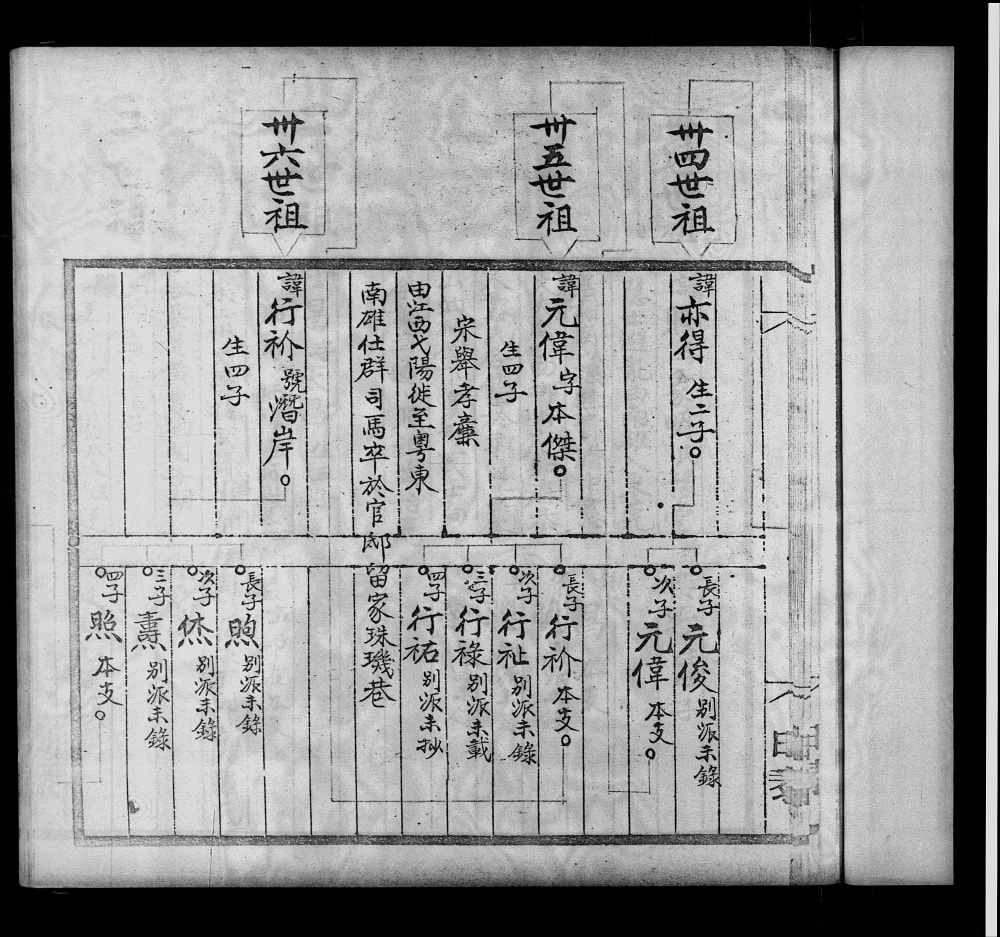 卅四世祖
諱亦得 生二子。
長子 元俊 别派未錄
次子 元偉 本支。
卅五世祖
諱元偉 字本傑。
生四子
宋舉孝廉
由江西弋陽徙至粤東
南雄仕群司馬卒於官邸留家珠璣巷
長子 行衸 本支。
次子 行祉 别派未錄
三子 行祿 别派未載
四子 行祐 别派未抄
卅六世祖
諱行衸 號潛岸。
生四子
長子 煦 别派未錄
次子 烋 别派未錄
三子 燾 别派未錄
四子 照 本支。